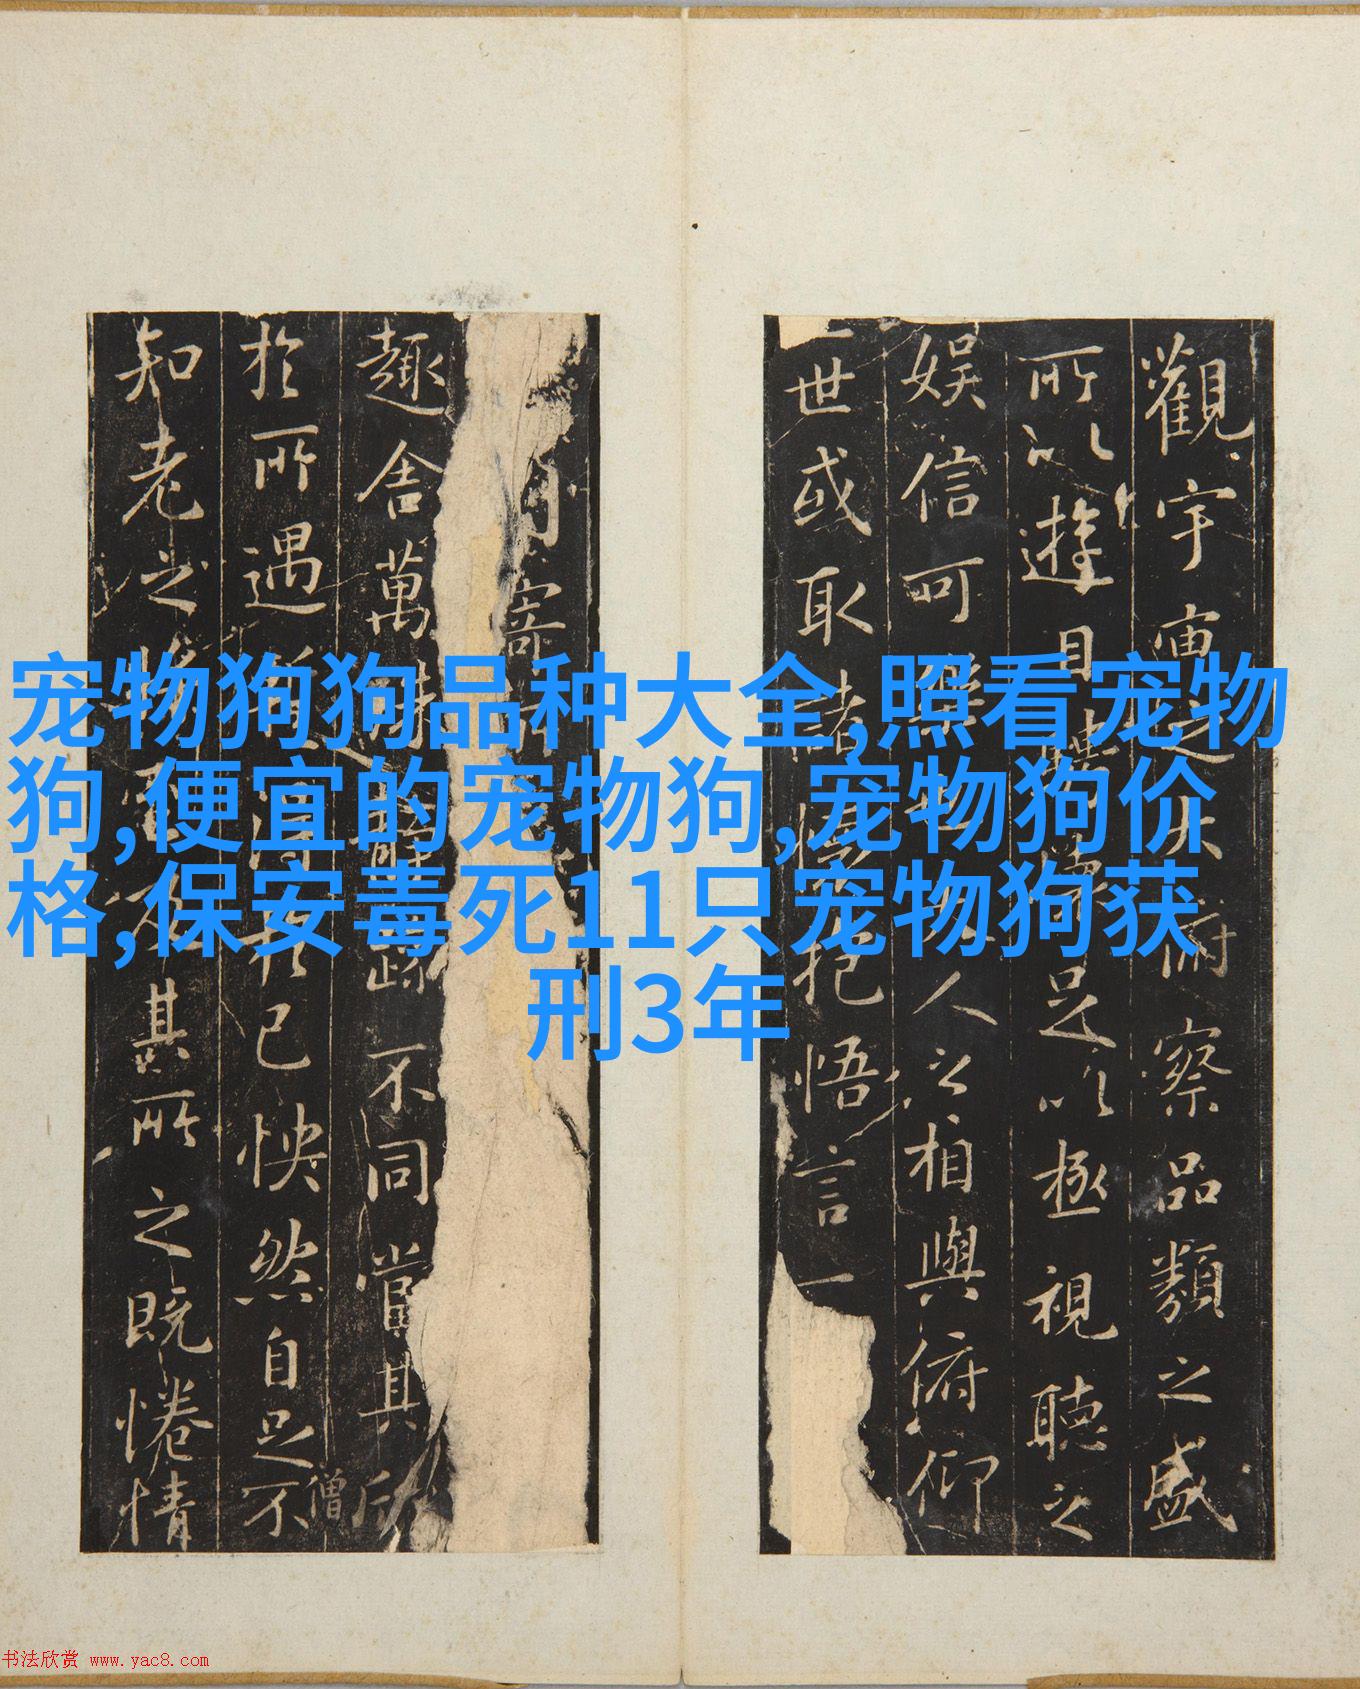 宠物狗狗品种大全,照看宠物
狗,便宜的宠物狗,宠物狗价
格,保安毒死11只宠物狗获
刑3年
觀宇宙之大俯察品類之盛
所以遊目騁懷足以極視聽之
娱信可樂也夫人之相與俯仰
一世或取諸懷抱悟言一
內寄
趣舍萬殊靜躁不同當其欣
僧
於所遇暫得於己怏然自足不
知老之將至及其所之既惓情
书法欣赏 www.yac8.com